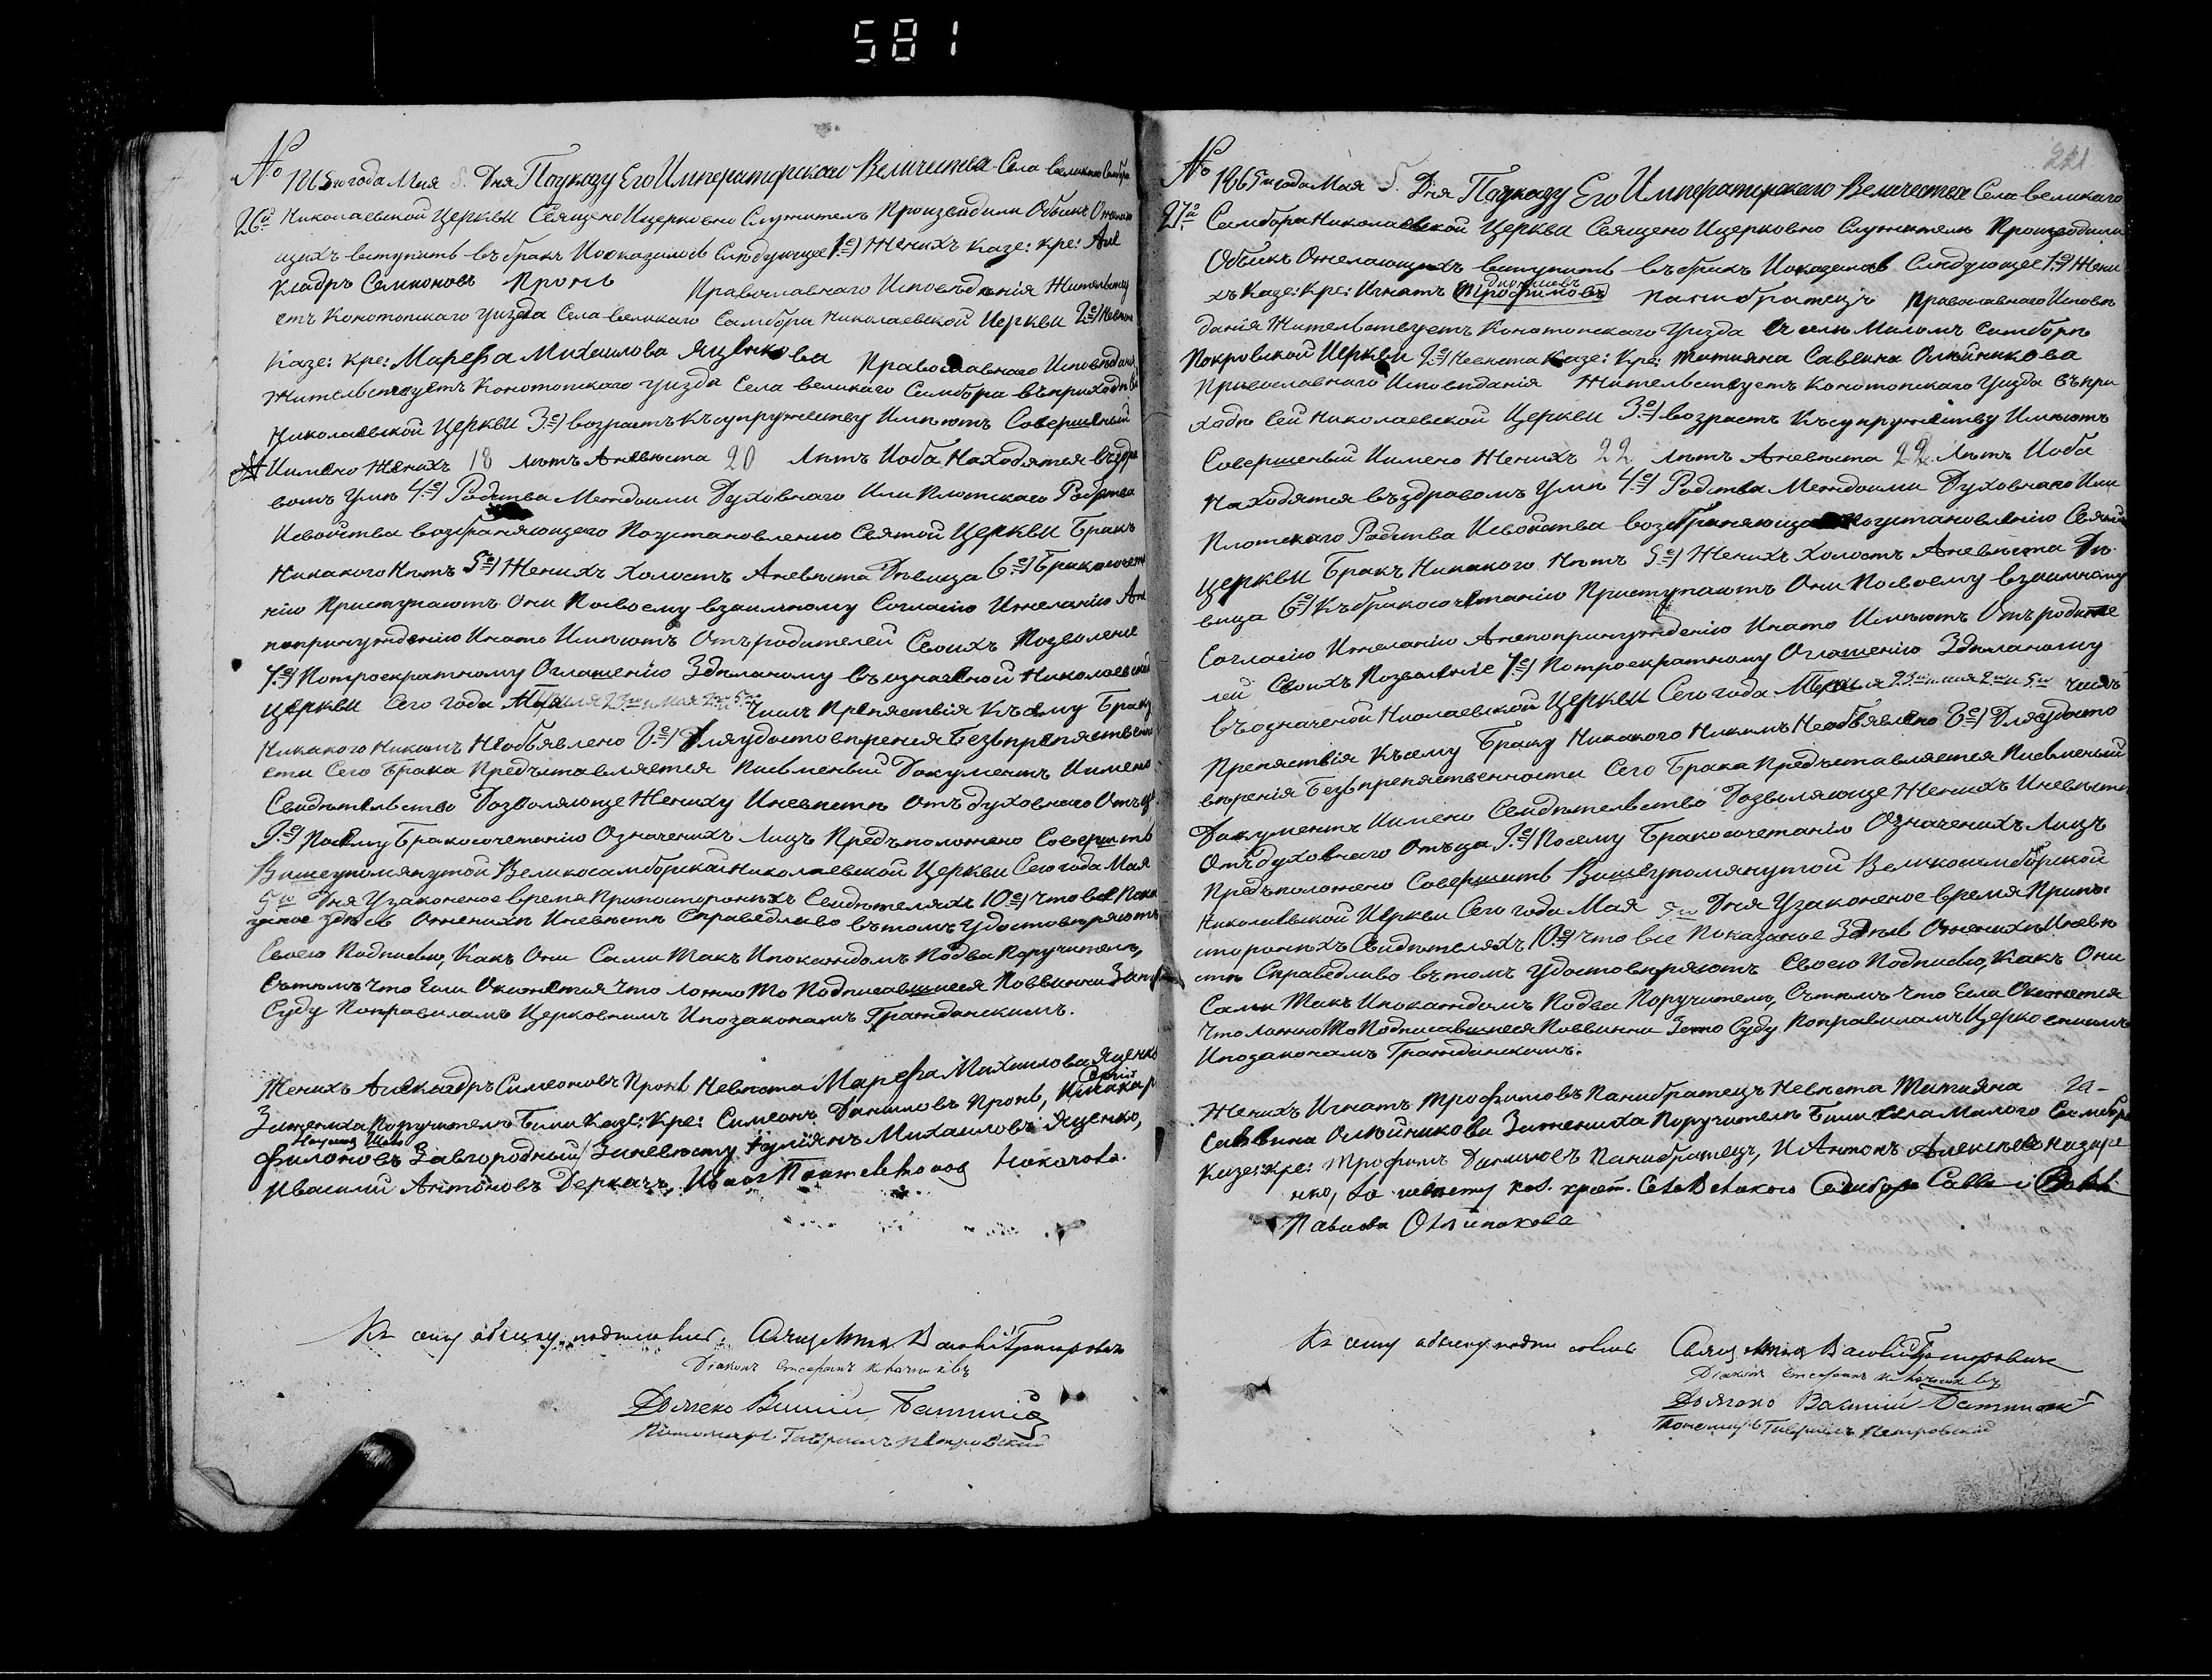 581
№ 1865го года Мая 5. Дня По указу Его Императорскаго Величества Села великаго Самбора
26й Николаевской Церкви Священо Ицерковно Служитель Производили Обыск О желаю
щихъ вступить въ бракъ Ипоказалось Следующее 1е) Женихъ Казе: Кре: Але
Ксадръ Семионовъ Пронь Православнаго Исповѣданія Жительству
етъ Конотопскаго уизда Села великаго Самбора Николаевской Церкви 2е) Невѣста
Казе: Кре: Марефа Михаилова Яценкова Православнаго Исповѣданія
Жительствуетъ Конотопскаго уизда Села великаго Самбора въприходѣ сей
Николаевской Церкви 3е) возрастъ Късупружеству Имѣютъ Совершеный
Иимено Женихъ 18 лѣтъ Аневѣста 20 Лѣтъ Иоба Находятся въздра
вомъ Умѣ 4е) Родства Междоими Духовнаго Или Плотскаго Родства
Исвойства возбраняющего Поустановлению Святой Церкви Бракъ
Никакого Нѣтъ 5е) Женихъ холостъ Аневѣста Дѣвица 6е) Бракосочета
нію Приступаютъ Они Посвоему взаимному Согласію Ижеланію Ане
попринуждению Инато Имѣютъ Отъродителей Своихъ Позволение
7е) Потроекратному Оглашенію Здѣланому въозначеной Николаевской
Церкви Сего года Апреля 23го и Мая 2го и 5го Числъ Препяствія Късему Браку
Никакого Никимъ Необъявлено 8е) Дляудостовѣрения Безъпрепяствено
сти Сего Брака Предъставляется Писменый Документъ Иимено
Свидѣтельство Дозволяюще Жениху Иневѣстѣ Отъдуховнаго Отъца
9е) Посему Бракосочетанию Означенихъ Лицъ Предъположено Совершить
Вишеупомянутой Великосамборской Николаевской Церкви Сего года Мая
5го Дня Узаконеное время Припосторонихъ Свидѣтеляхъ 10е) Что все Пока
заное здѣсь Оженихѣ Иневѣстѣ Справедливо вътомъ удостовѣряютъ
Своею Подписью, Какъ Они Сами Такъ Ипокаждомъ Подва Поручителѣ,
Сътѣмъ Что Если Окажется Что ложно То Подписавшиеся Повинни Зато
Суду Поправиламъ Церковнимъ Ипозаконамъ Гражданскимъ.
Женихъ Алекадръ Симеоновъ Пронь Невѣста Марефа Михаилова Яценко
Зажениха Поручитель Били Казе: Кре: Симеонъ Даниловъ Пронь, Имакар
Филоновъ Завгородный Заневѣсту Михаиловъ Яценко,
Ивасилий Антоновъ Деркачъ,
Къ сему обыску подписались: Священникъ Василій Григоровичъ
Діаконъ Стефанъ
Дьячекъ Василій
Пономарь Гавріилъ Петровскій
221
№ 1865го года Мая 5. Дня По указу Его Императорскаго Величества Села великаго
27й Самбора Николаевской Церкви Священо Ицерковно Служитель Производили
Обыск Ожелающихъ вступить въбракъ Ипоказалось Следующее 1е) Жени
хъ Казе: Кре: Игнатъ Трофимовъ Панибратецъ Православнаго Исповѣ
данія Жительствуетъ Конотопскаго Уизда Въселѣ Маломъ Самборѣ
Покровской Церкви 2е) Невѣста Казе: Кре: Татияна Савеина Олѣйникова
Православнаго Исповиданія Жительствуетъ Конотопскаго Уизда Въпри
ходѣ Сей Николаевской Церкви 3е) возрастъ Късупружеству Имѣютъ
Совершеный Иимено Женихъ 22 Лѣтъ Аневѣста 22 Лѣтъ Иоба
Находятся въздравомъ Умѣ 4е) Родства Междоими Духовнаго Или
Плотскаго Родства Исвойства возбраняюща Поустановлению Святой
Церкви Бракъ Никакого Нѣтъ 5е) Женихъ холостъ Аневѣста Дѣ
вица 6е) Къбракосочетанію Приступаютъ Они Посвоему взаимному
Согласію Ижеланію Анепопринуждению Инато Имѣютъ Отъродите
лей Своихъ Позволеніе 7е) Потроекратному Оглашенію Здѣланому
Въозначеной Николаевской Церкви Сего года Апреля 23го и мая 2го и 5го Числъ
Препяствія Късему Браку Никакого Никимъ Необъявлено 8е) Дляудосто
вѣренія Безъпрепяственности Сего Брака Предъставляется Писменый
Документъ Иимено Свидѣтельство Дозволяюще Женихъ Иневѣсте
Отъдуховнаго Отъца 9е) Посему Бракосочетанію Означенихъ Лицъ
Предъположено Совершить Вишеупомянутой Великосамборской
Николаевской Церкви Сего года Мая 5го Дня Узаконеное время Припо
сторонихъ Свидѣтеляхъ 10е) Что все Показаное Здѣсь Оженихѣ Иневѣ
стѣ Справедливо вътомъ Удостовѣряютъ Своею Подписью, Какъ Они
Сами Такъ Ипокаждомъ Подва Поручителѣ, Сътѣмъ Что Если Окажется
Что ложно То Подписавшиеся Повинни Зато Суду Поправиламъ Церковнимъ
Ипозаконамъ Гражданскимъ.
Женихъ Игнатъ Трофимовъ Панибратецъ Невѣста Татияна
Савеина Олѣйникова Зажениха Поручитель Били Села Малого Самбора
Казе: Кре: Трофимъ Даниловъ Панибратецъ, И Антонъ Алексѣевъ Назаре
нко, За невесту каз. крест. Села Великого Самбора
Павлова
Къ сему обыску подписались Священникъ Василій Григоровичъ
Діаконъ Стефанъ
Дьячекъ Василій
Пономарь Гавріилъ Петровскій